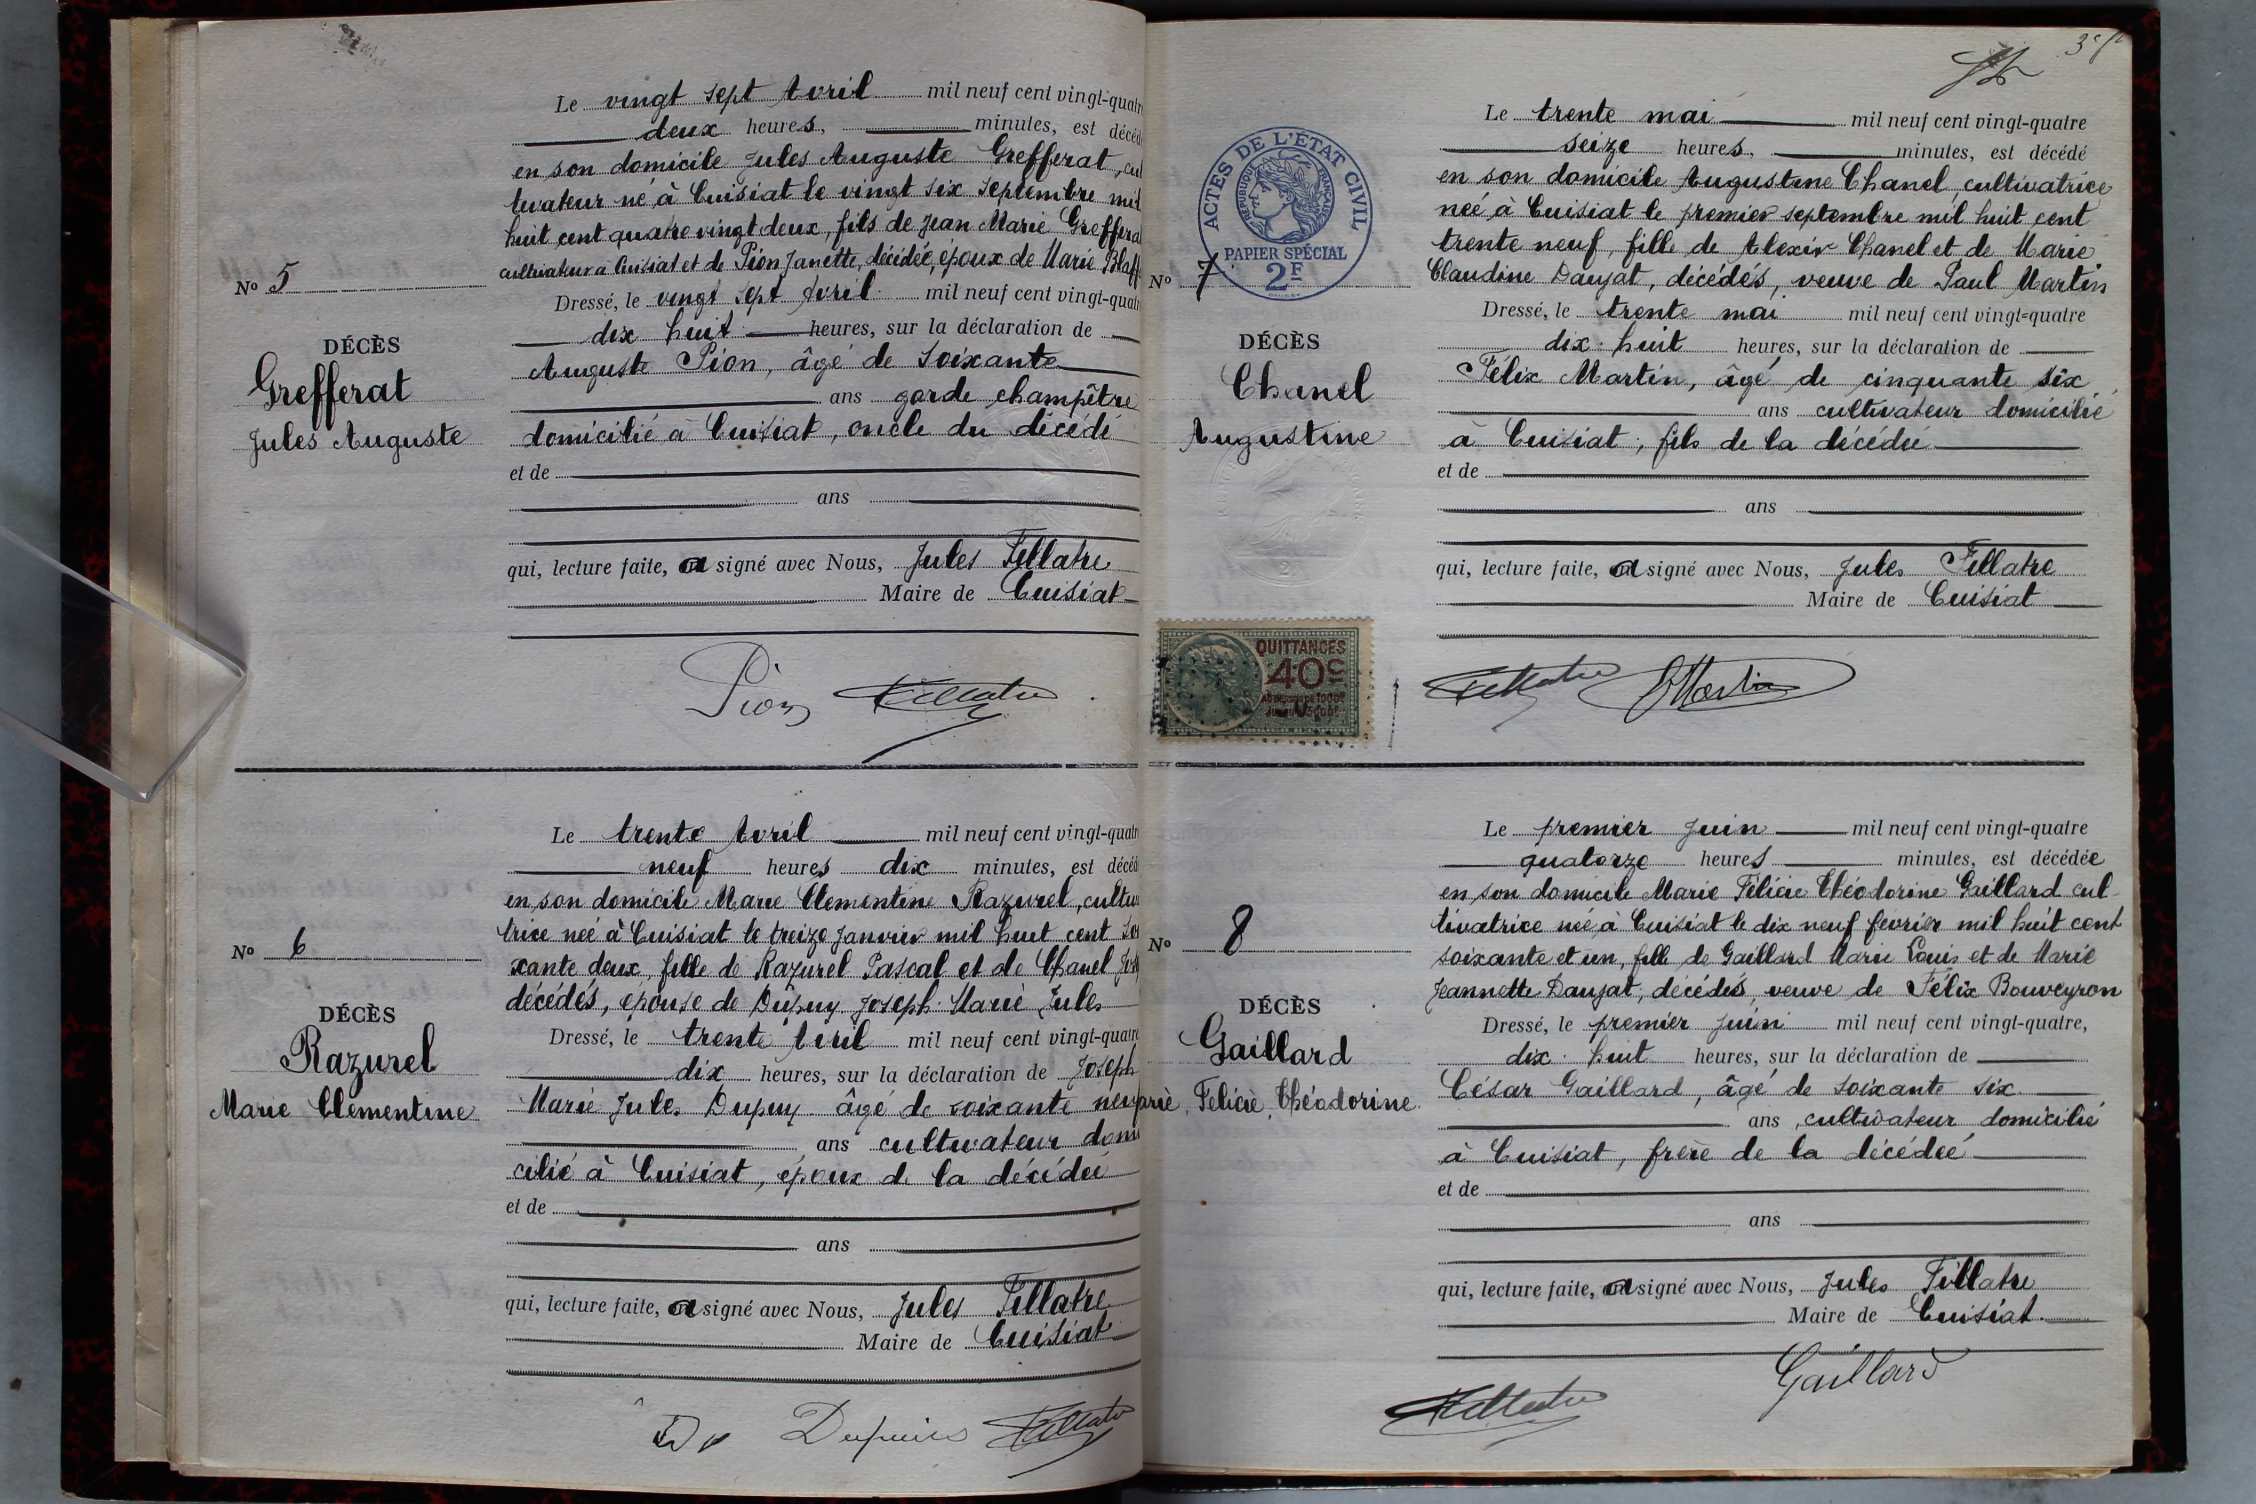 Le vingt sept Avril mil neuf cent vingt-quatr
deux heures, minutes, est décéd
en son domicile Jules Auguste Grefferat, cul
tivateur né à Cuisiat le vingt six septembre mil
huit cent quatre vingt deux, fils de Jean Marie Grefferat
cultivateur à Cuisiat et de Pion Janette, décédée, époux de Marie Blaff
No 5
Dressé, le vingt sept Avril mil neuf cent vingt-quatr
dix huit heures, sur la déclaration de
DÉCÈS
Grefferat
Jules Auguste
Auguste Pion, âgé de soixante
ans garde champêtre
domicilié à Cuisiat, oncle du décédé
et de
ans
qui, lecture faite, a signé avec Nous, Jules Fillatre
Maire de Cuisiat
Pion Fillatre
Le trente Avril mil neuf cent vingt-quatr
neuf heures dix minutes, est décéd
en son domicile Marie Clementine Razurel, cultiva
trice née à Cuisiat le treize Janvier mil huit cent soi
xante deux, fille de Razurel Pascal et de Chanel
décédés, épouse de Dupuy Joseph Marie Jules
No 6
DÉCÈS
Razurel
Marie Clementine
Dressé, le trente Avril mil neuf cent vingt-quatre
dix heures, sur la déclaration de Joseph
Marie Jules Dupuy âgé de soixante neuf
ans cultivateur domi
cilié à Cuisiat, époux de la décédée
et de
ans
qui, lecture faite, a signé avec Nous, Jules Fillatre
Maire de Cuisiat
Dupuis Fillatre
Le trente mai mil neuf cent vingt-quatre
seize heures, minutes, est décédé
en son domicile Augustine Chanel, cultivatrice
née à Cuisiat le premier septembre mil huit cent
trente neuf, fille de Alexis Chanel et de Marie
Claudine Daujat, décédés, veuve de Paul Martin
ACTES DE L'ÉTAT CIVIL
RÉPUBLIQUE FRANÇAISE
PAPIER SPÉCIAL
2F
No 7
DÉCÈS
Chanel
Augustine
Dressé, le trente mai mil neuf cent vingt-quatre
dix huit heures, sur la déclaration de
Félix Martin, âgé de cinquante six
ans cultivateur domicilié
à Cuisiat, fils de la décédée
et de
ans
qui, lecture faite, a signé avec Nous, Jules Fillatre
Maire de Cuisiat
QUITTANCES
40c
Fillatre Martin
Le premier Juin mil neuf cent vingt-quatre
quatorze heures minutes, est décédée
en son domicile Marie Félicie Théodorine Gaillard cul-
tivatrice née à Cuisiat le dix neuf février mil huit cent
soixante et un, fille de Gaillard Marie Louis et de Marie
Jeannette Daujat, décédés, veuve de Félix Bouveyron
No 8
DÉCÈS
Gaillard
Félicie Théodorine
Dressé, le premier Juin mil neuf cent vingt-quatre,
dix huit heures, sur la déclaration de
César Gaillard, âgé de soixante six
ans, cultivateur domicilié
à Cuisiat, frère de la décédée
et de
ans
qui, lecture faite, a signé avec Nous, Jules Fillatre
Maire de Cuisiat
Gaillard
Fillatre